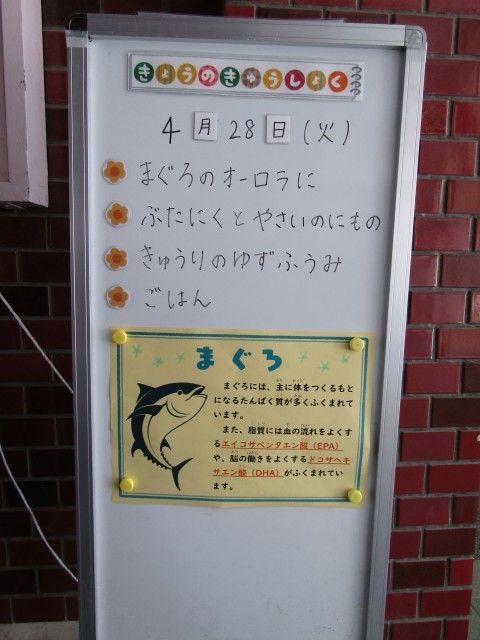 きょうのきゅうしょく
4月28日(火)
まぐろのオーロラに
ぶたにくとやさいのにもの
きゅうりのゆずふうみ
ごはん
まぐろ
まぐろには、主に体をつくるもと
になるたんぱく質が多くふくまれて
います。
また、脂質には血の流れをよくす
るエイコサペンタエン酸（EPA）
や、脳の働きをよくするドコサヘキ
サエン酸（DHA）がふくまれてい
ます。